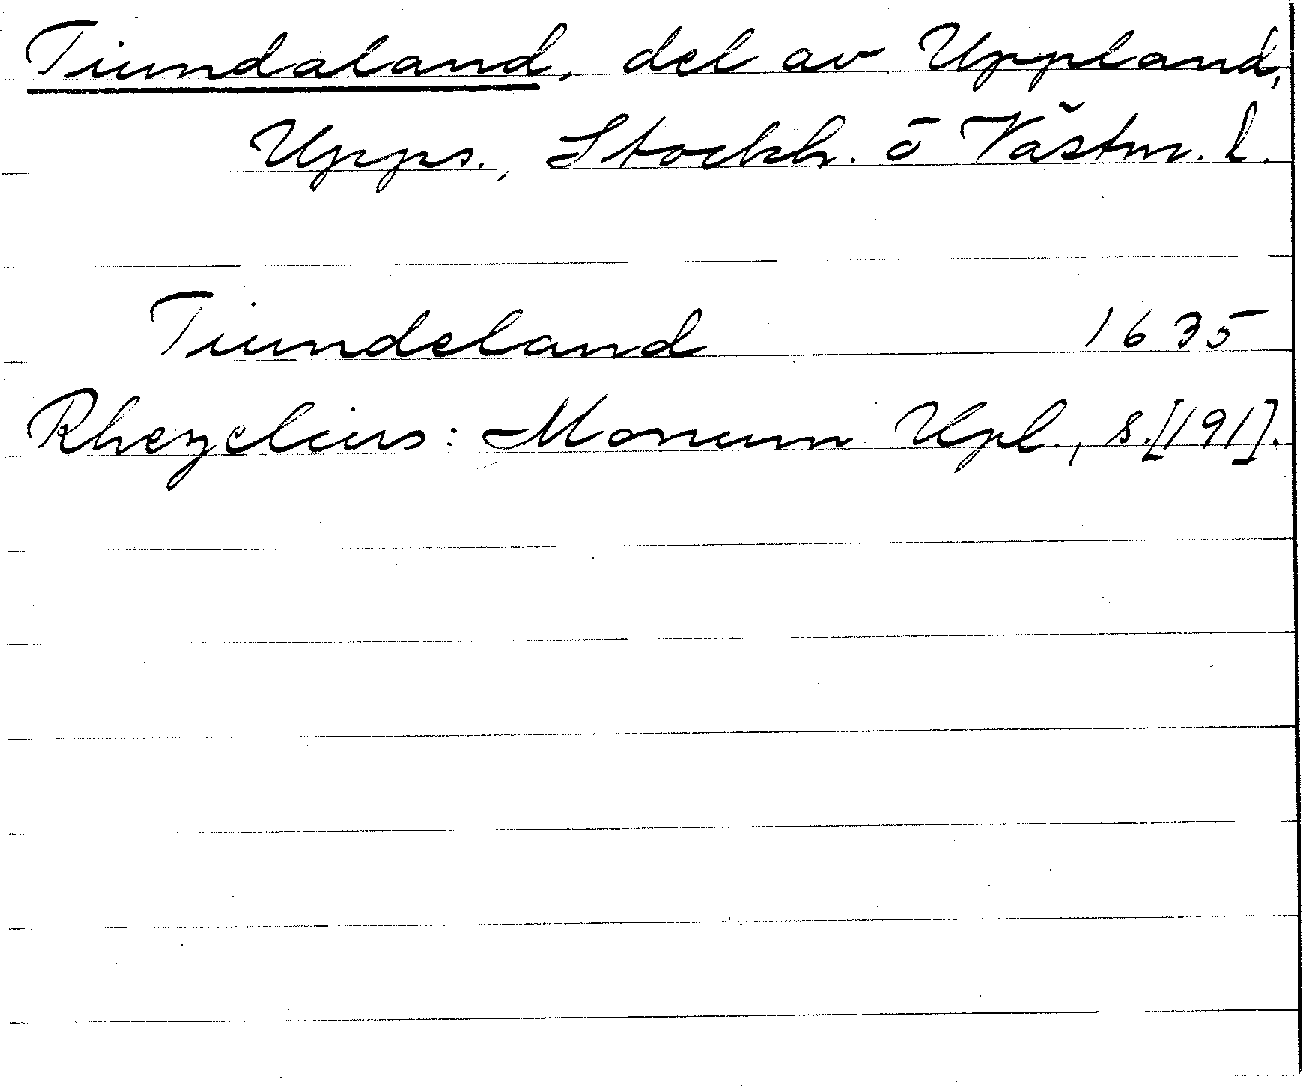 Tiundaland, del av Uppland,
Upps., Stockh. o Västm. l.
Tiundeland 1635
Rhezelius: Monum Upl., s.[191].